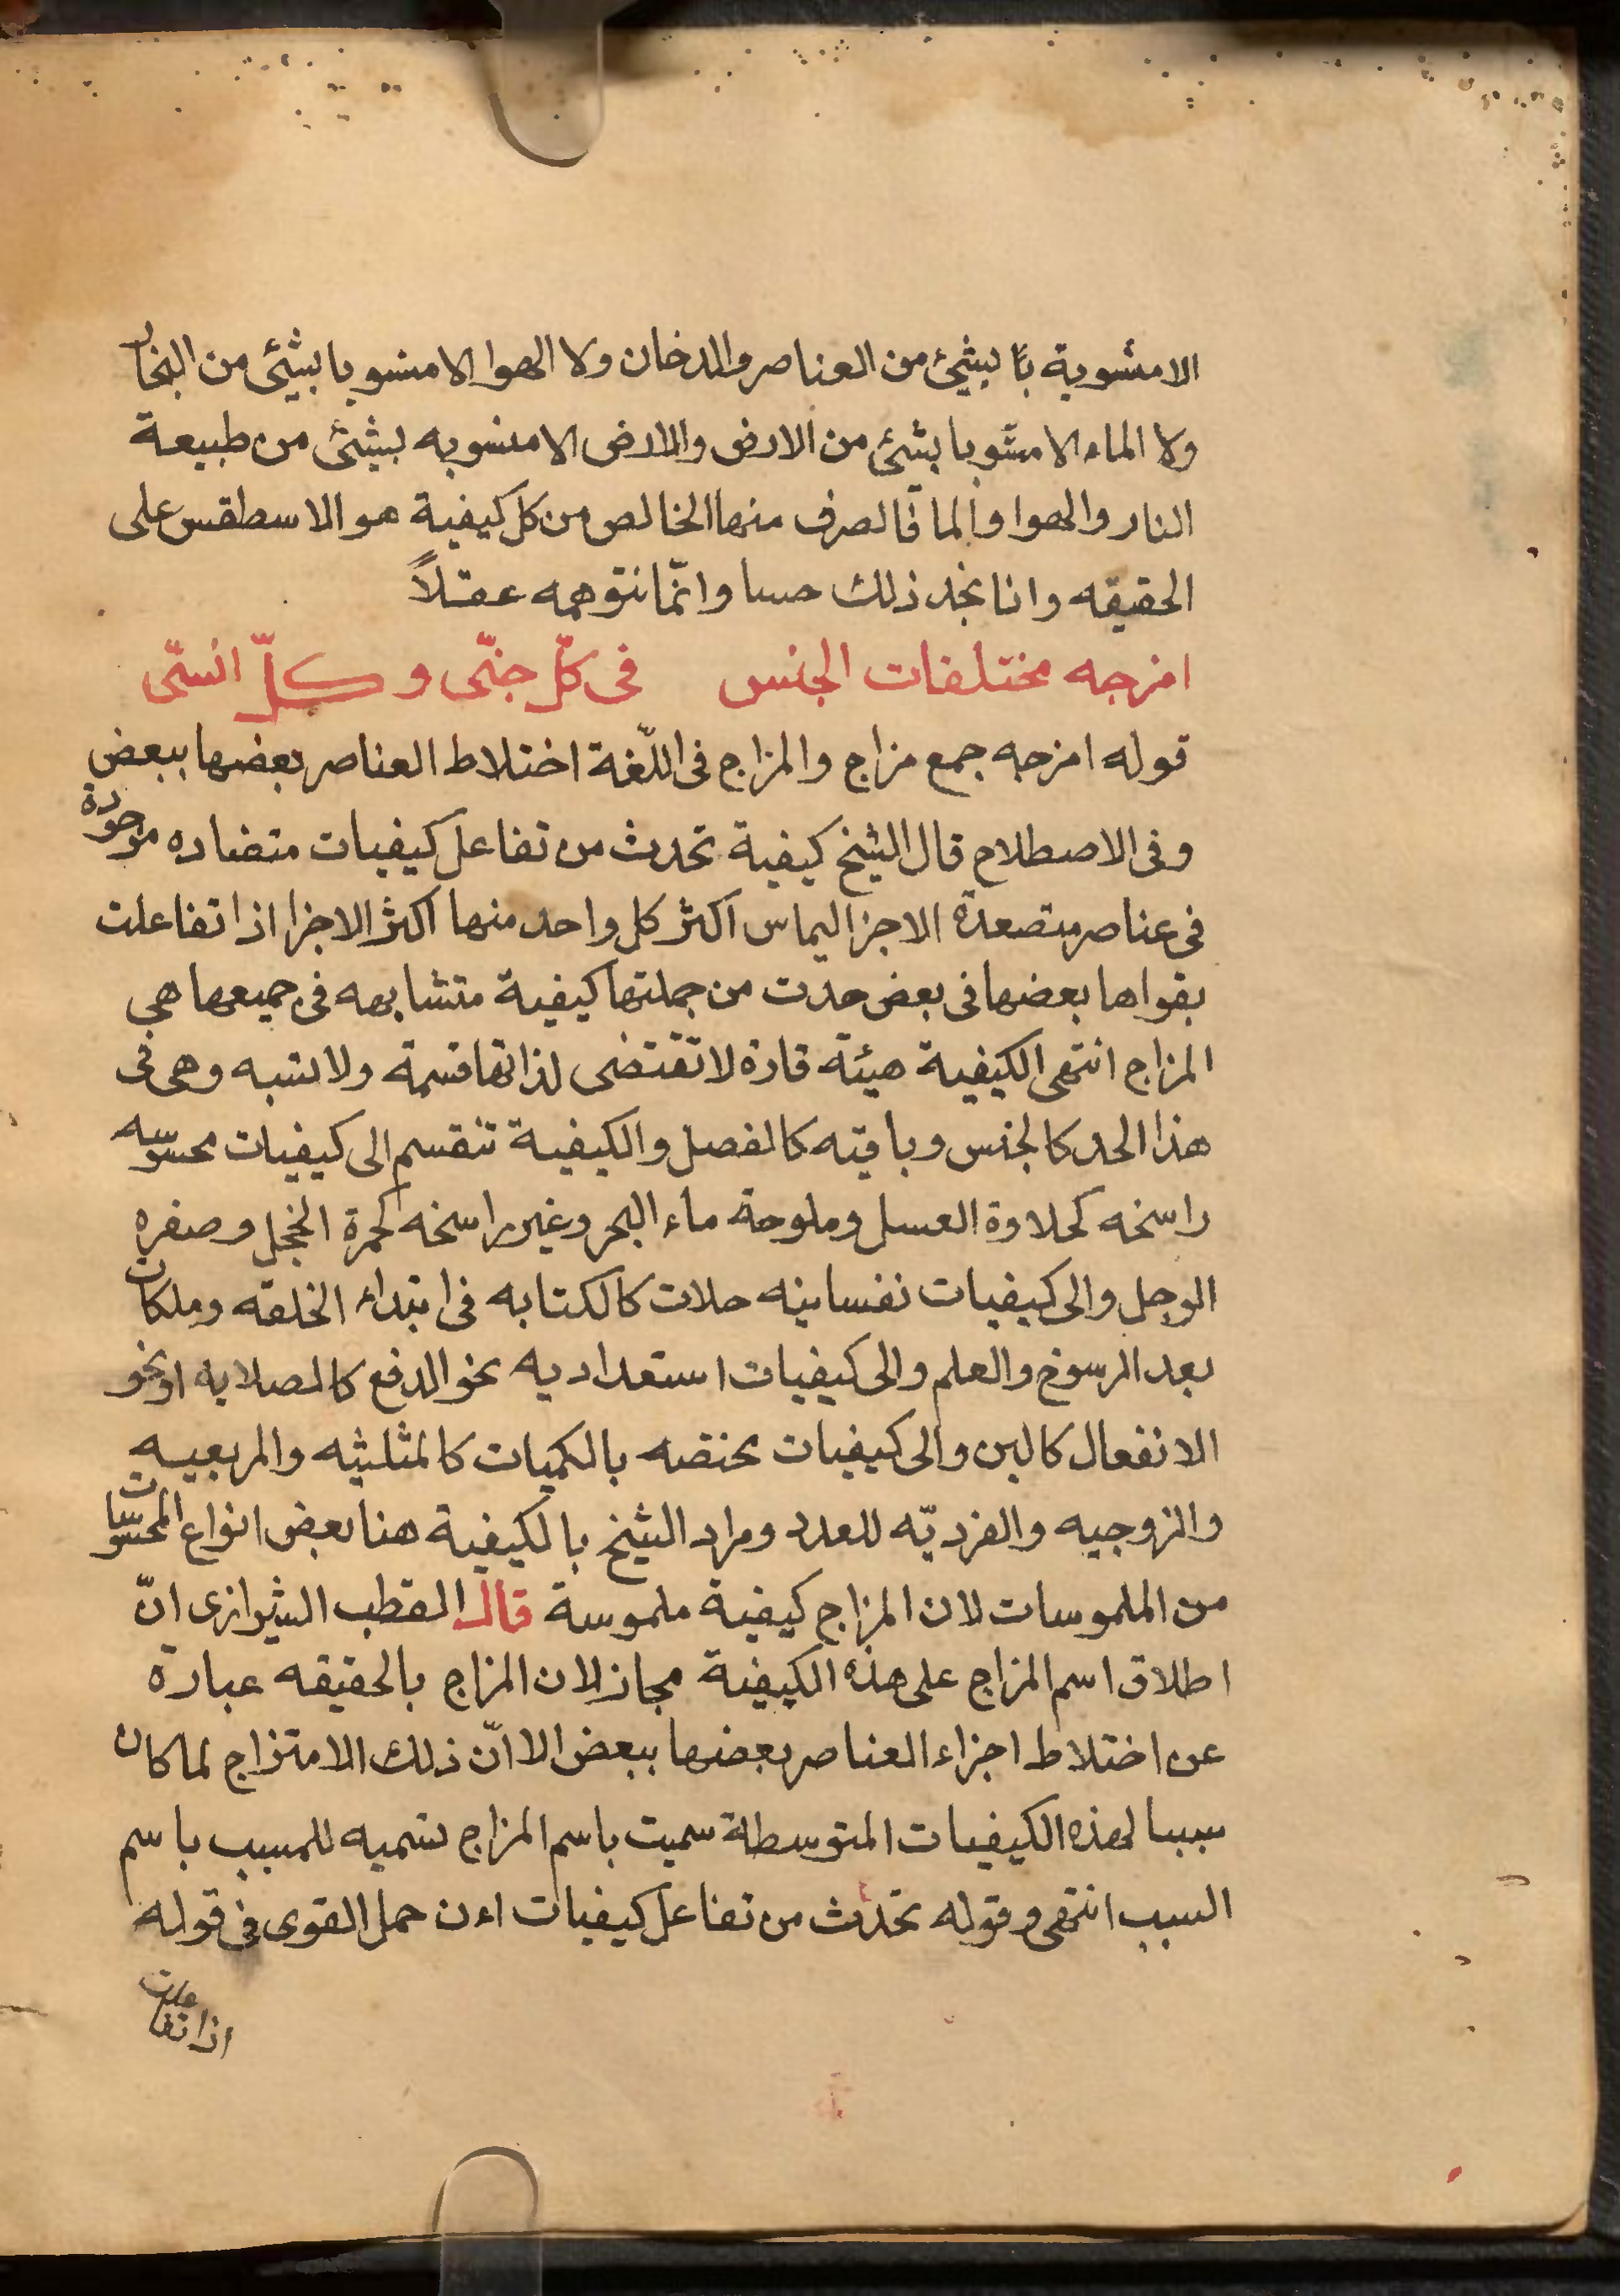 الا مشوبة بّا بشئ من العناصر والدخان ولا الهوا الا مشوبا بشئ من البخار
ولا الماء الا مشوبا بشئ من الارض والارض الا مشوبه بشئ من طبيعة
النار والهوا والما فالصرف منها الخالص من كل كيفية هو الاسطقس على
الحقيقه وانا نجد ذلك حسا وانّما نتوهمه عقلاً
امزجه مختلفات الجنس في كلّ جنّى وكلّ انسّى
قوله امزجه جمع مزاج والمزاج فى اللّغة اختلاط العناصر بعضها ببعض
وفى الاصطلاح قال الشيخ كيفية تحدث من تفاعل كيفيات متضاده موجودة
فى عناصر متصعدة الاجزا ليماس اكثر كل واحد منها اكثر الاجزا اذا تفاعلت
بقواها بعضها فى بعض حدث من جملتها كيفية متشابهه فى جميعها هى
المزاج انتهى الكيفية هيئة قارة لا تقتضى لذاتها قسمة ولا نسبه وهى فى
هذا الحد كالجنس وباقيه كالفصل والكيفية تنقسم الى كيفيات محسوسه
راسخه كحلاوة العسل وملوحة ماء البحر وغير راسخه كحمرة الخجل وصفره
الوجل والى كيفيات نفسانيه حلات كالكتابه فى ابتداء الخلقه وملكات
بعد الرسوخ والعلم والى كيفيات استعداديه نحو الدفع كالصلابه او نحو
الانفعال كالين والى كيفيات مختصه بالكميات كالمثلثيه والمربعيه
والزوجيه والفرديّه للعدد ومراد الشيخ بالكيفية هنا بعض انواع المحسوسات
من الملموسات لان المزاج كيفية ملموسة قال القطب الشيرازى انّ
اطلاق اسم المزاج على هذه الكيفية مجاز لان المزاج بالحقيقه عبارة
عن اختلاط اجزاء العناصر بعضها ببعض الا انّ ذلك الامتزاج لما كان
سببا لهذه الكيفيات المتوسطة سميت باسم المزاج تسميه للمسبب باسم
السبب انتهى وقوله تحدث من تفاعل كيفيات اءن حمل القوى فى قوله
اذا تفاعلت